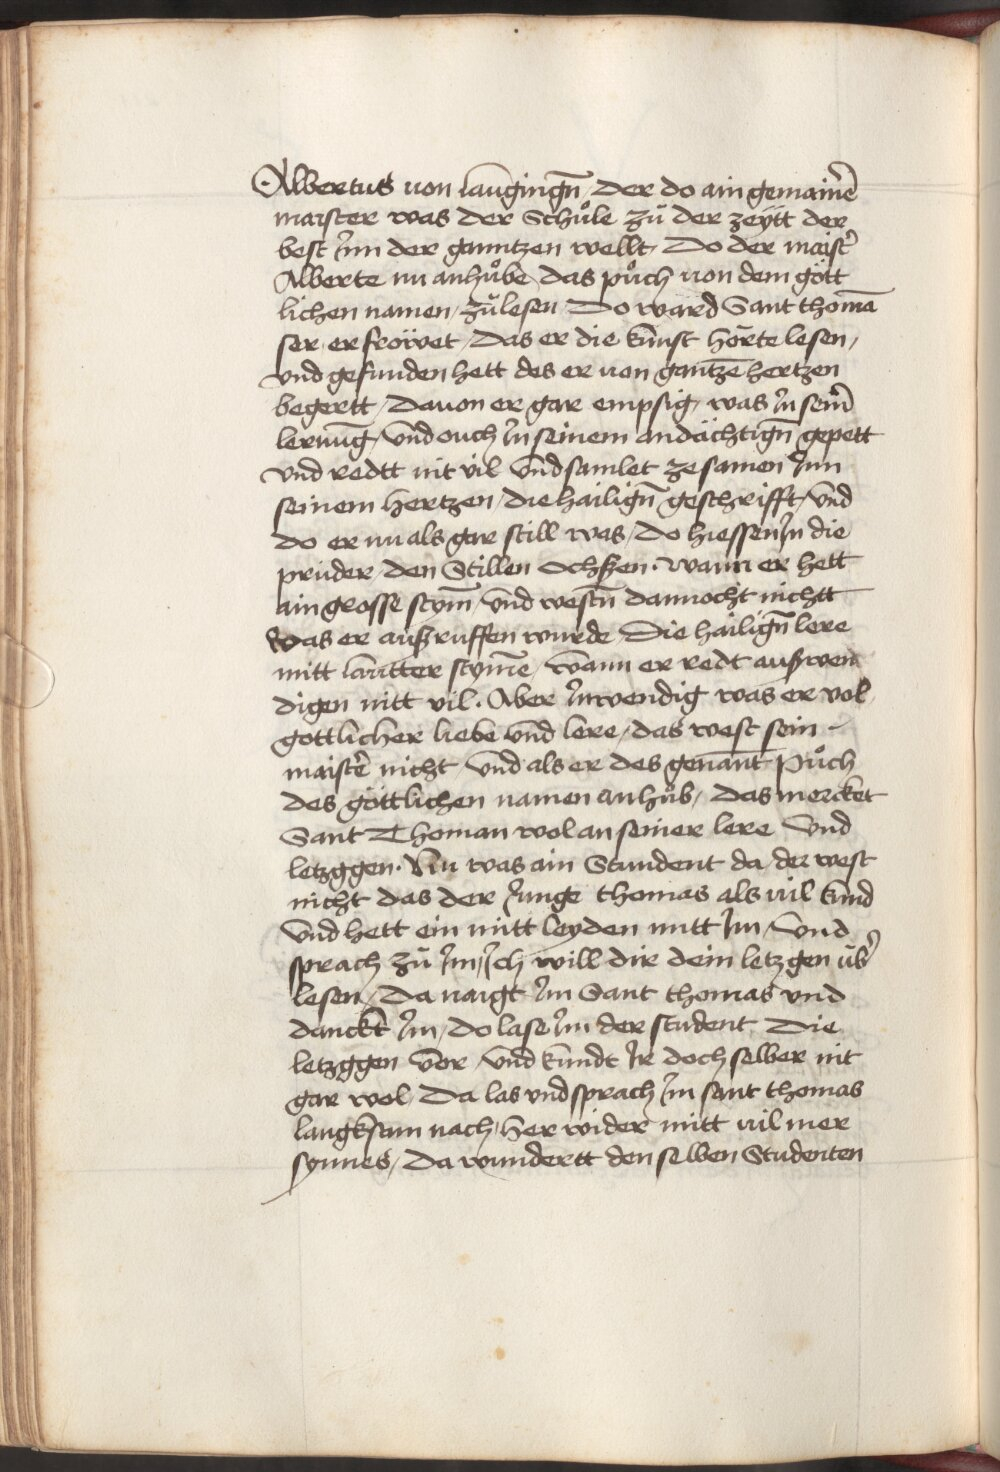 Albertus von laugingn̄ / der do ain gemainer̄
maister was der Schůle zů der zeytt der
best Jnn der ganntzen wellt / Do der maister̄
Alberte nu anhůbe / das půch von dem gött
lichen namen / zůlesen Do ward Sant thoman̄
ser erfröwet / Das er die kunst hörte lesen /
vnd gefunden hett des er von gantzē hertzen
begertt / Dauon er gar empsig / was Jn sein̄
lernūg / vnd ouch Jn seinem andächtign̄ gepett
vnd redtt nit vil vnd samlet zesamen Jnn
seinem hertzen / die hailign̄ geschrifft / vnd
do er nu als gar still was / Do hiessen Jn die
prüder / den Stillen Ochssen · wann er hett
ain grosse stym̄ / vnd westn̄ dannocht nichtt
was er außruffen wurde Die hailign̄ lere
mitt lautter stym̄e / wann er redt außwen
digen nitt vil · Aber Jnwendig was er vol
gottlicher liebe vnd lere / das west sein
maister̄ nicht / vnd als er des genant Půch
des göttlichen namen anhůb / Das mercket
Sant Thoman wol an seiner lere Vnd
letzggen · Nu was ain Student da der west
nicht das der Junge thomas als vil kund
vnd hett ein mitt leyden mitt Jm / Vnd
sprach zů Jm / Jch will dir dein letzgen über̄
lesen / Da naigt Jm Sant thomas vnd
danckt Jm / Do lase Jm der student Die
letzggen vor / vnd kundt Jr doch selber nit
gar wol / Da las vnd sprach Jm sant thomas
langksam nach / herwider mitt vil mer
synnes / Da wundertt denselben Studenten